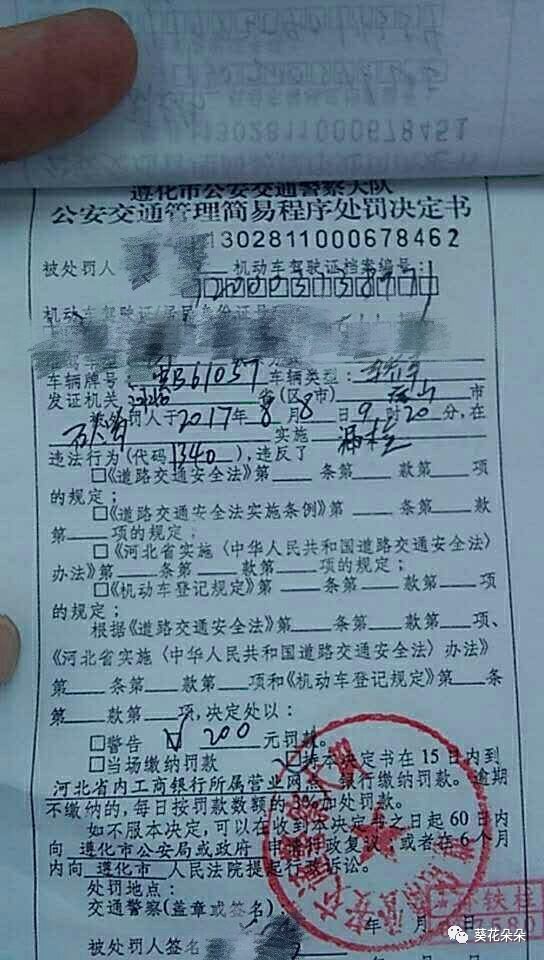 11302811000678451
遵化市公安交通警察大队
公安交通管理简易程序处罚决定书
1302811000678462
被处罚人 机动车驾驶证档案编号:
机动车驾驶证/居民身份证号
车辆牌号 冀B61057 车辆类型:
发证机关 河北 省(区市) 唐山 市
被处罚人于2017年8月8日9时20分,在
实施
违法行为(代码1340),违反了
□《道路交通安全法》第 条第 款第 项
的规定;
□《道路交通安全法实施条例》第 条第 款
第 项的规定;
□《河北省实施〈中华人民共和国道路交通安全法〉
办法》第 条第 款第 项的规定;
□《机动车登记规定》第 条第 款第 项
的规定;
根据《道路交通安全法》第 条第 款第 项、
《河北省实施〈中华人民共和国道路交通安全法〉办法》
第 条第 款第 项和《机动车登记规定》第 条
第 款第 项,决定处以:
□警告 200 元罚款。
□当场缴纳罚款 持本决定书在15日内到
河北省内工商银行所属营业网点 银行缴纳罚款。逾期
不缴纳的,每日按罚款数额的3%加处罚款。
如不服本决定,可以在收到本决定书之日起60日内
向 遵化市公安局或政府 申请行政复议;或者在6个月
内向 遵化市 人民法院提起行政诉讼。
处罚地点:
交通警察(盖章或签名):
年 月 日
被处罚人签名
葵花朵朵